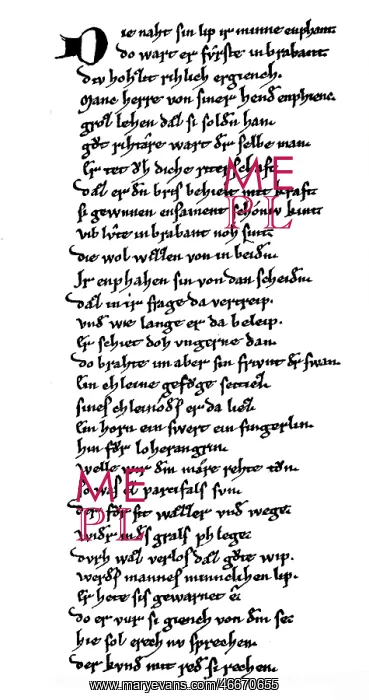 Die naht sin lip ir minne enphant
do wart er fvrste in brabant
div hohzit rihlich ergiench.
Manc herre von siner hend enphienc
groz lehen daz si soldn han
gůt rihtære wart dr selbe man
Er tet dh diche riterschaft
daz er dn bris behielt mit kraft
si gewunnen ensament schoniv kint
vil lvte in brabant noh sint
die wol wizzen von in beidn
Ir enphahen sin von dan scheidn
daz in ir frage da vertreip.
vnd wie lange er da beleip.
Er schiet doh vngerne dan
do brahte im aber sin frivnt dr swan
Ein chleine gefǒge seitiez
sines chleinodes er da liez
Ein horn ein swert ein fingerlin
hin fůr loherangrin
welle wir dm mære rehte tůn
so was er parcifals svn
der fůr sit wazzer vnd wege
grals phlege
dvrh waz verlos daz gůte wip.
werds mannes minnclichen lip.
Er hete sis gewarnet ê
do er vur si giench von dm se
hie sol erech nv sprechen
der kvnd mit red si rechen
ME
PL
ME
PL
www.maryevans.com/46670655